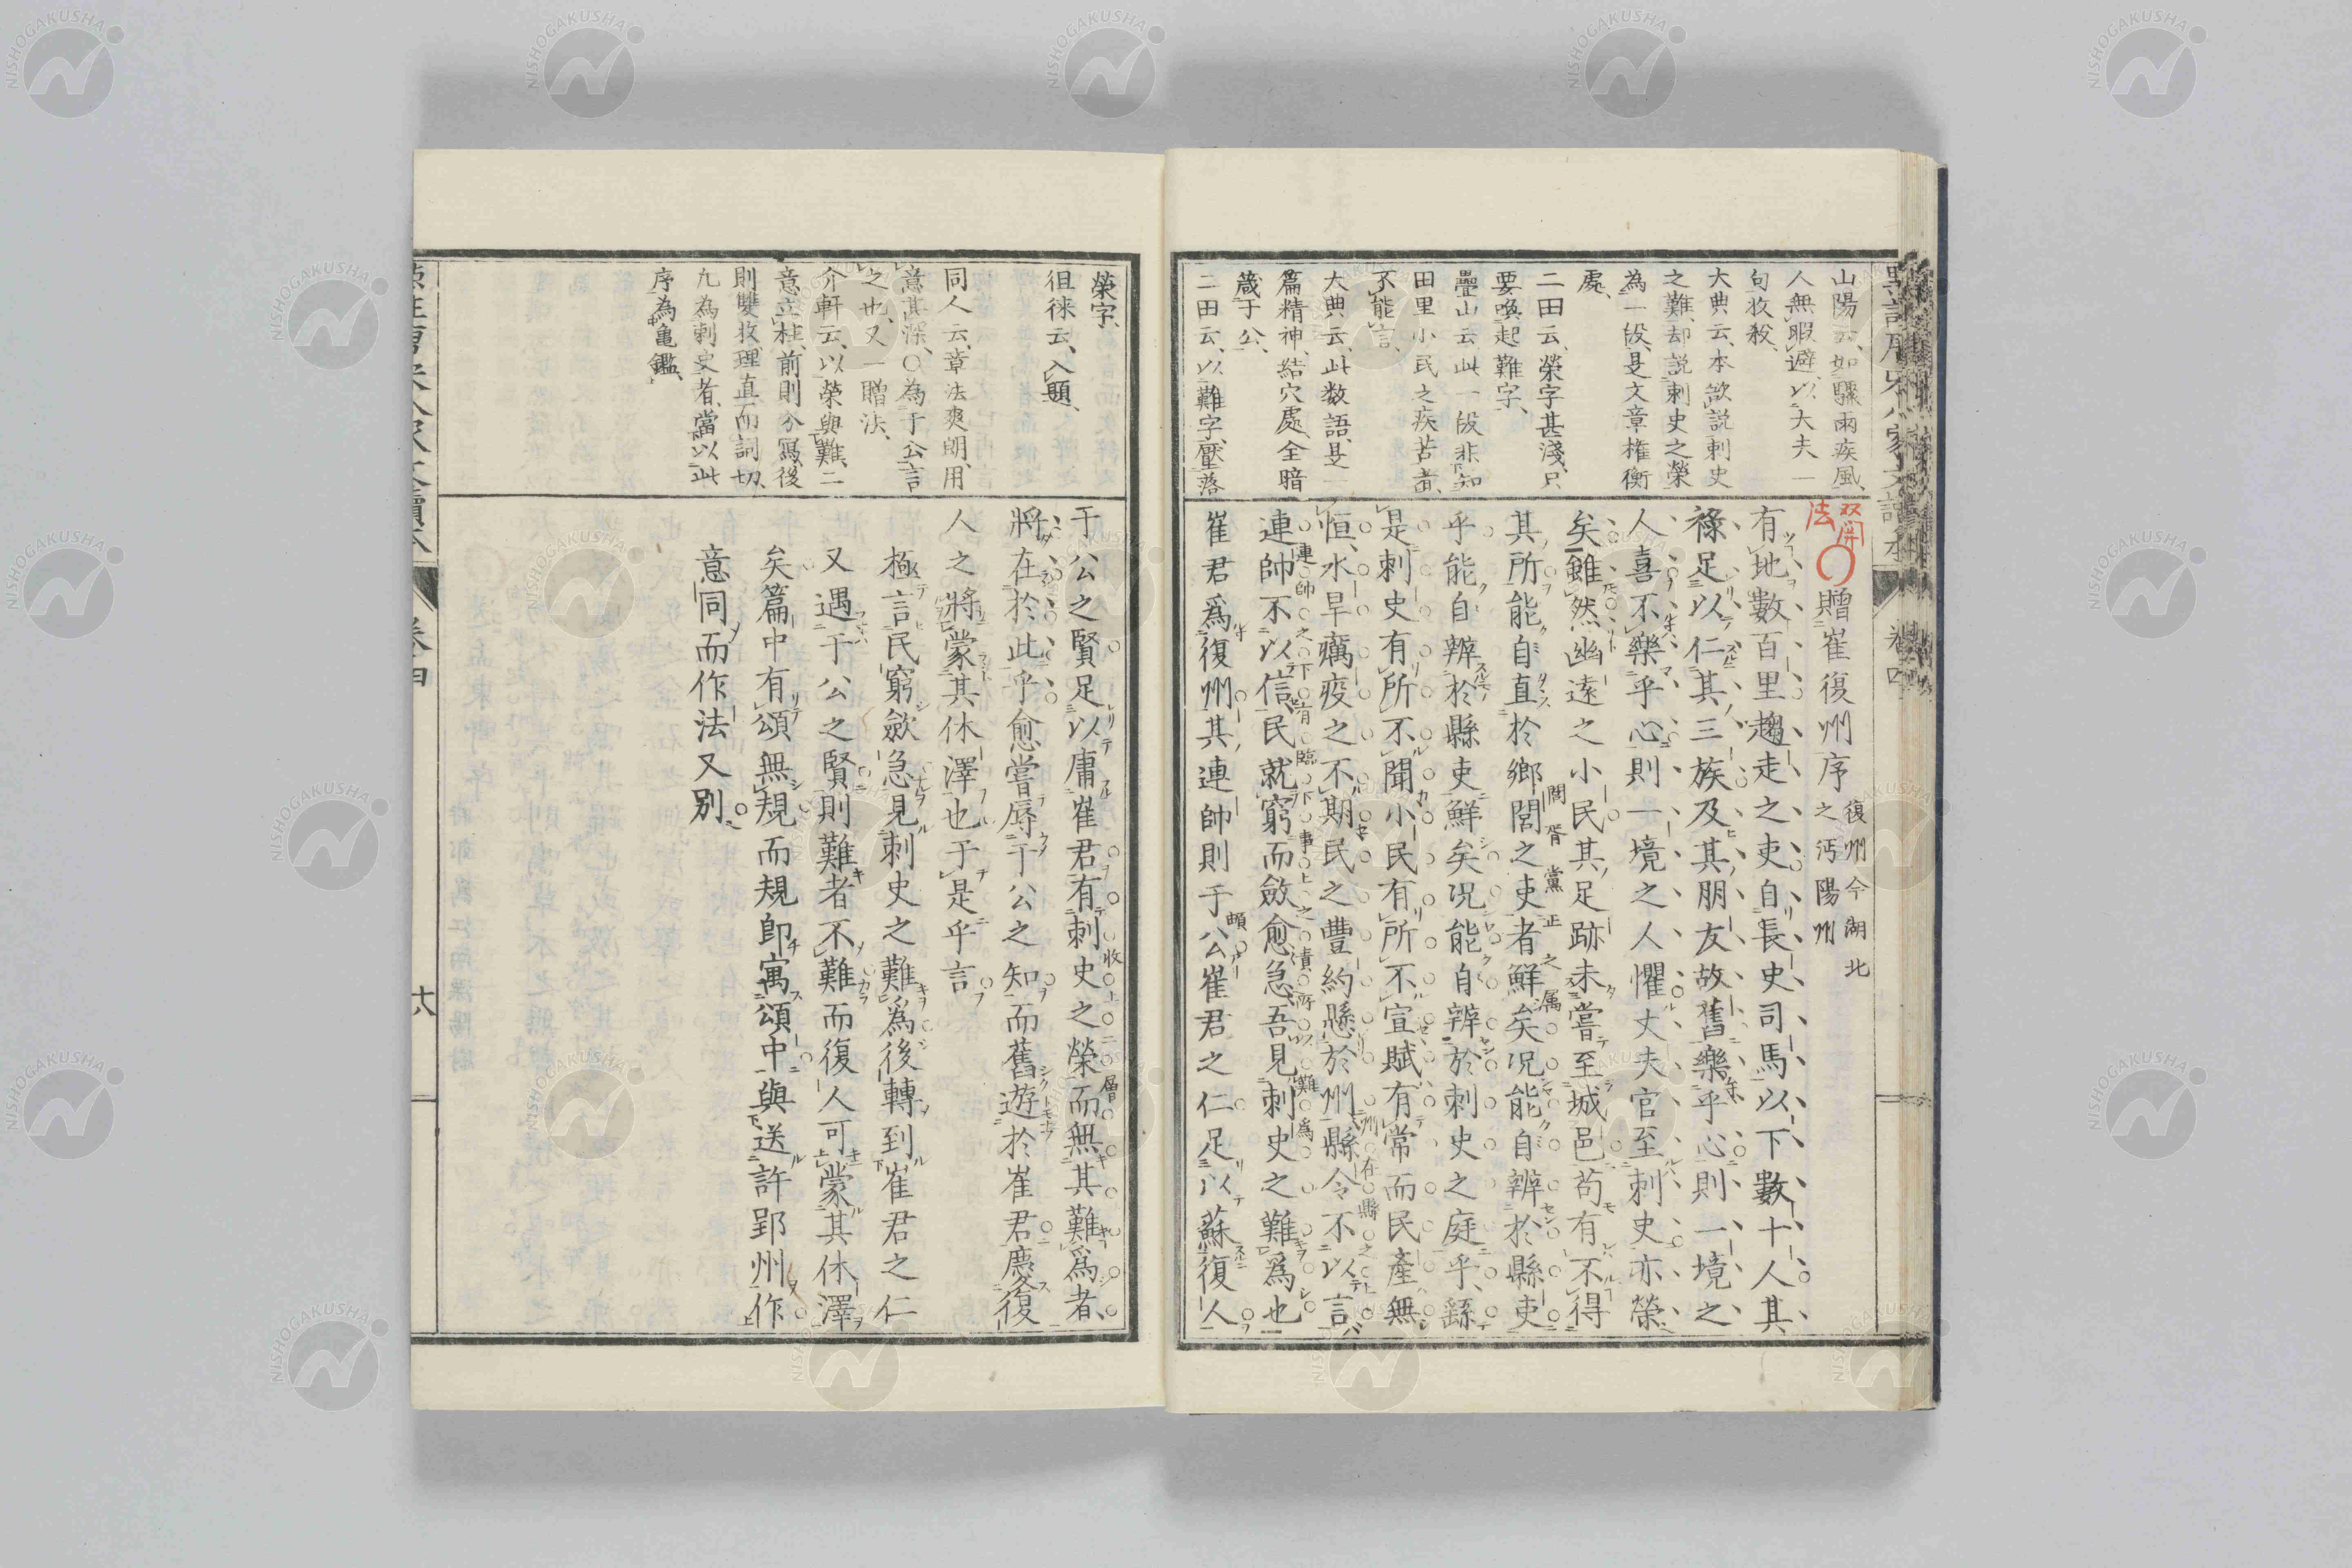 山陽云、如驟雨疾風、
人無暇避、以大夫一
句收殺、
大典云、本欲説刺史
之難、却説刺史之榮
為一段、是文章權衡
處、
二田云、榮字甚淺、只
要喚起難字、
疊山云、此一段非知
田里小民之疾苦者、
不能言、
大典云、此数語、是一
篇精神、結穴處、全暗
蔵于公、
二田云、以難字壓落
双関
法
贈崔復州序
復州今湖北
之沔陽州
有地數百里趨走之吏自長史司馬以下數十人其
祿足以仁其三族及其朋友故舊樂乎心則一境之
人喜不樂乎心則一境之人懼丈夫官至刺史亦榮
矣雖然幽遠之小民其足跡未嘗至城邑苟有不得
其所能自直於鄉閭之吏者鮮矣況能自辨於縣吏
乎能自辨於縣吏鮮矣況能自辨於刺史之庭乎、繇
是刺史有所不聞小民有所不宣賦有常而民產無
恒、水旱癘疫之不期民之豐約懸於州縣令不以言
連帥不以信民就窮而斂愈急吾見刺史之難爲也
崔君爲復州其連帥則于公崔君之仁足以蘇復人
巻四
榮字、
徂徠云、入題、
同人云、章法爽朗、用
意甚深、○為于公言
之也、又一贈法、
介軒云、以榮與難、二
意立柱、前則分寫、後
則雙收、理直而詞切、
凡為刺史者、當以此
序為亀鑑、
于公之賢足以庸崔君有刺史之榮而無其難爲者、
將在於此乎愈嘗辱于公之知而舊遊於崔君慶復
人之將蒙其休澤也于是乎言
極言民窮斂急見刺史之難為後轉到崔君之仁
又遇于公之賢則難者不難而復人可蒙其休澤
矣篇中有頌無規而規即寓頌中與送許郢州作
意同而作法又別
六
NISHOGAKUSHA